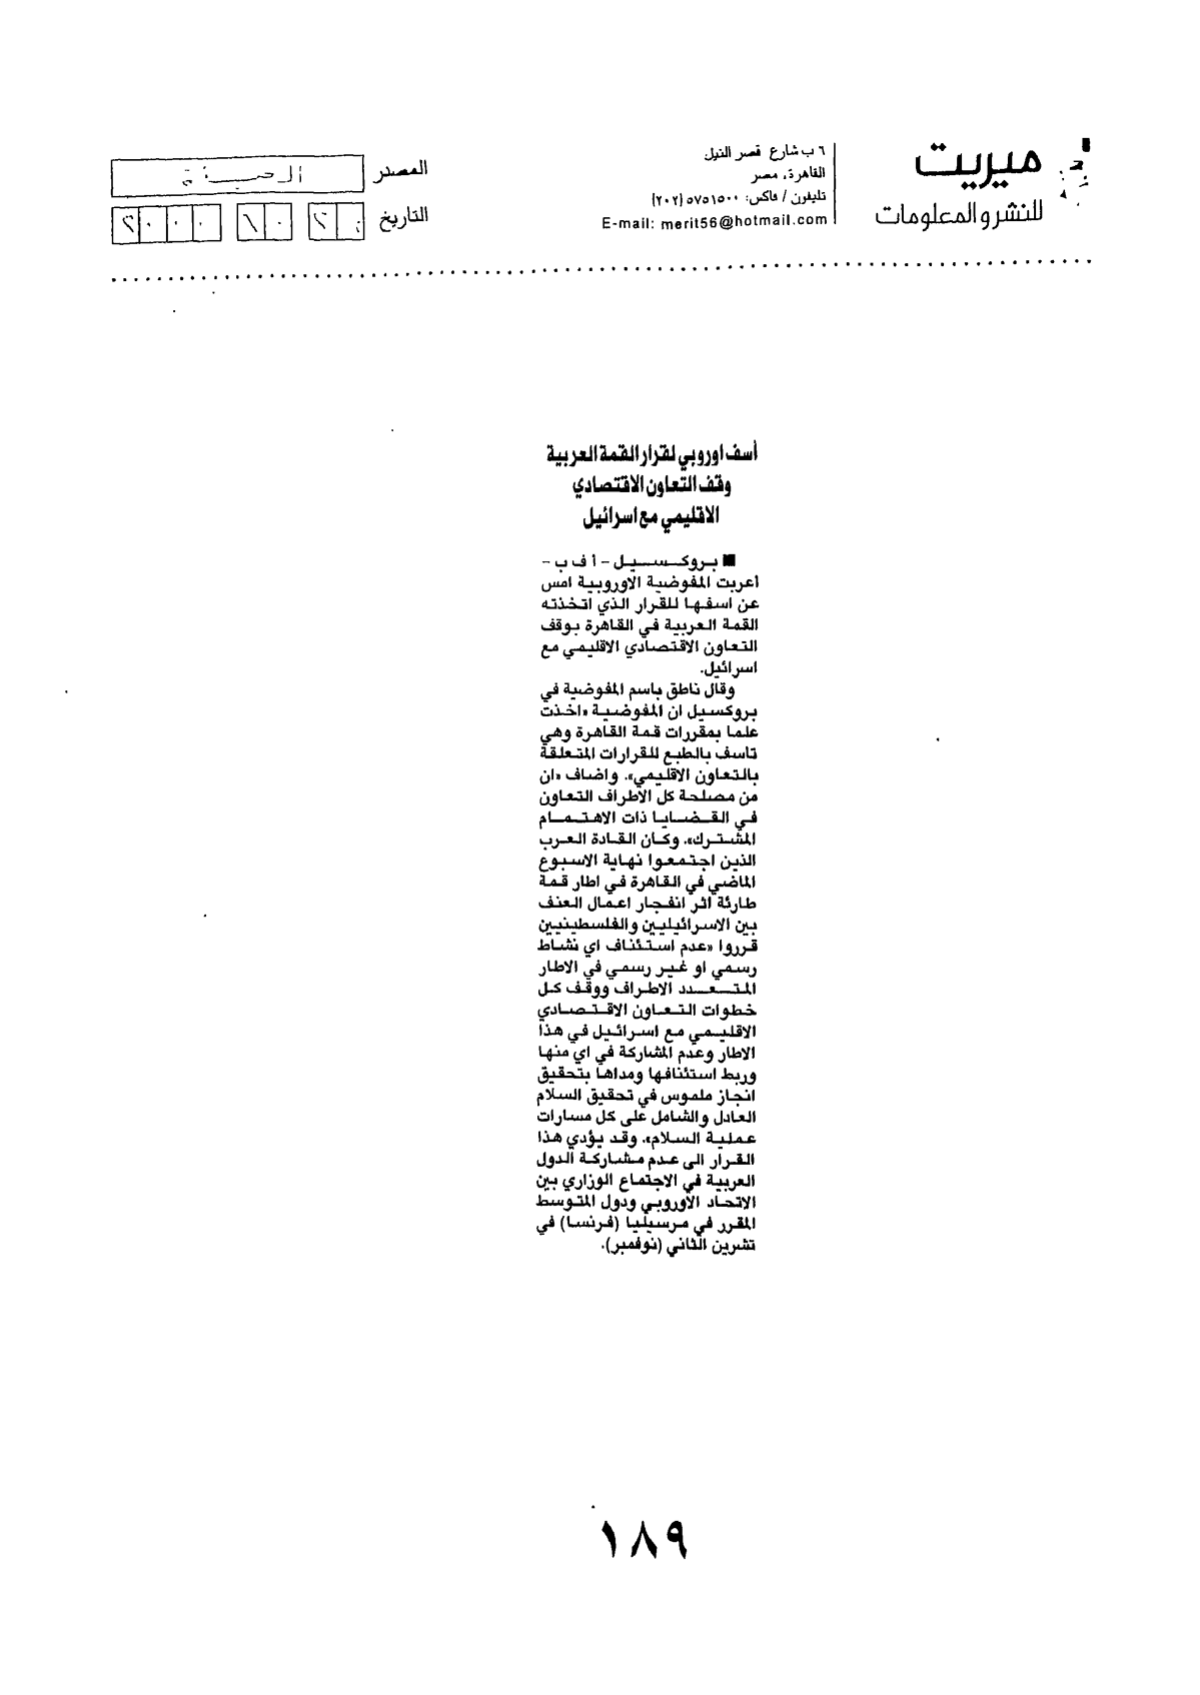 ميريت
للنشر والمعلومات
٦ ب شارع قصر النيل
القاهرة، مصر
تليفون / فاكس: ٥٧٥١٥٠٠ (٢٠٢)
E-mail: merit56@hotmail.com
المصدر
التاريخ
أسف اوروبي لقرار القمة العربية
وقف التعاون الاقتصادي
الاقليمي مع اسرائيل
■ بروكسيل – أ ف ب –
أعربت المفوضية الاوروبية امس
عن اسفها للقرار الذي اتخذته
القمة العربية في القاهرة بوقف
التعاون الاقتصادي الاقليمي مع
اسرائيل.
وقال ناطق باسم المفوضية في
بروكسيل ان المفوضية «اخذت
علما بمقررات قمة القاهرة وهي
تاسف بالطبع للقرارات المتعلقة
بالتعاون الاقليمي». واضاف «ان
من مصلحة كل الاطراف التعاون
في القضايا ذات الاهتمام
المشترك». وكان القادة العرب
الذين اجتمعوا نهاية الاسبوع
الماضي في القاهرة في اطار قمة
طارئة اثر انفجار اعمال العنف
بين الاسرائيليين والفلسطينيين
قرروا «عدم استئناف اي نشاط
رسمي او غير رسمي في الاطار
المتعدد الاطراف ووقف كل
خطوات التعاون الاقتصادي
الاقليمي مع اسرائيل في هذا
الاطار وعدم المشاركة في اي منها
وربط استئنافها ومداها بتحقيق
انجاز ملموس في تحقيق السلام
العادل والشامل على كل مسارات
عملية السلام». وقد يؤدي هذا
القرار الى عدم مشاركة الدول
العربية في الاجتماع الوزاري بين
الاتحاد الأوروبي ودول المتوسط
المقرر في مرسيليا (فرنسا) في
تشرين الثاني (نوفمبر).
١٨٩